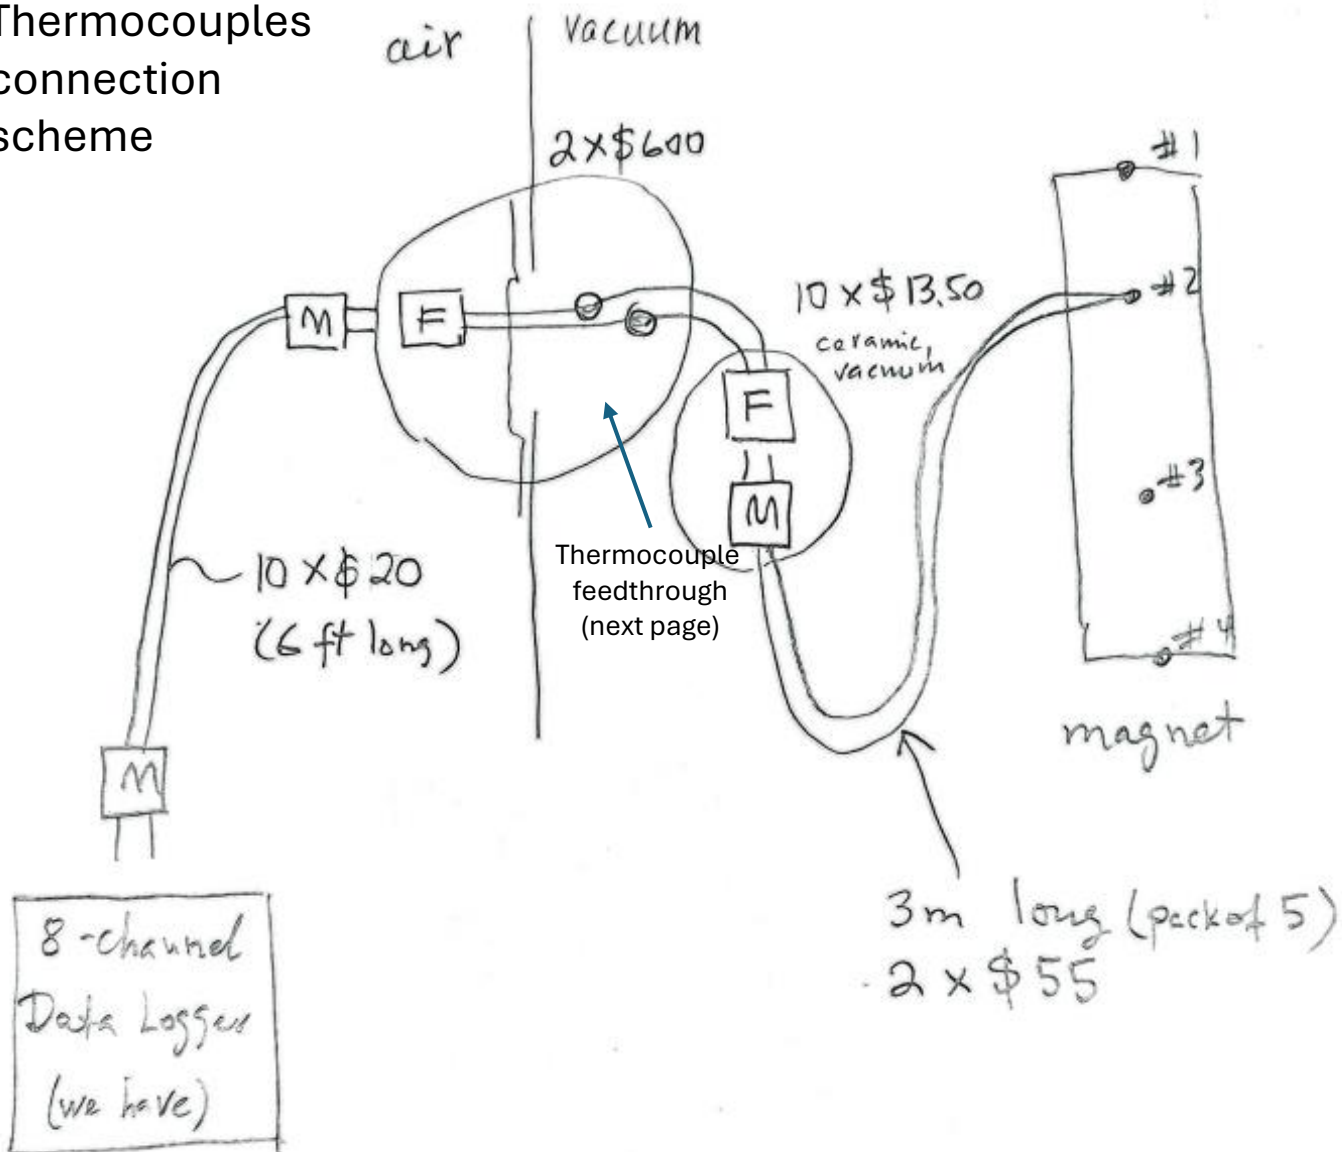 Thermocouples
connection
scheme
air
vacuum
2 x $600
M
F
10 x $13.50
ceramic,
vacuum
F
M
#1
#2
#3
#4
magnet
Thermocouple
feedthrough
(next page)
10 x $20
(6 ft long)
M
8-channel
Data Logger
(we have)
3m long (pack of 5)
2 x $55